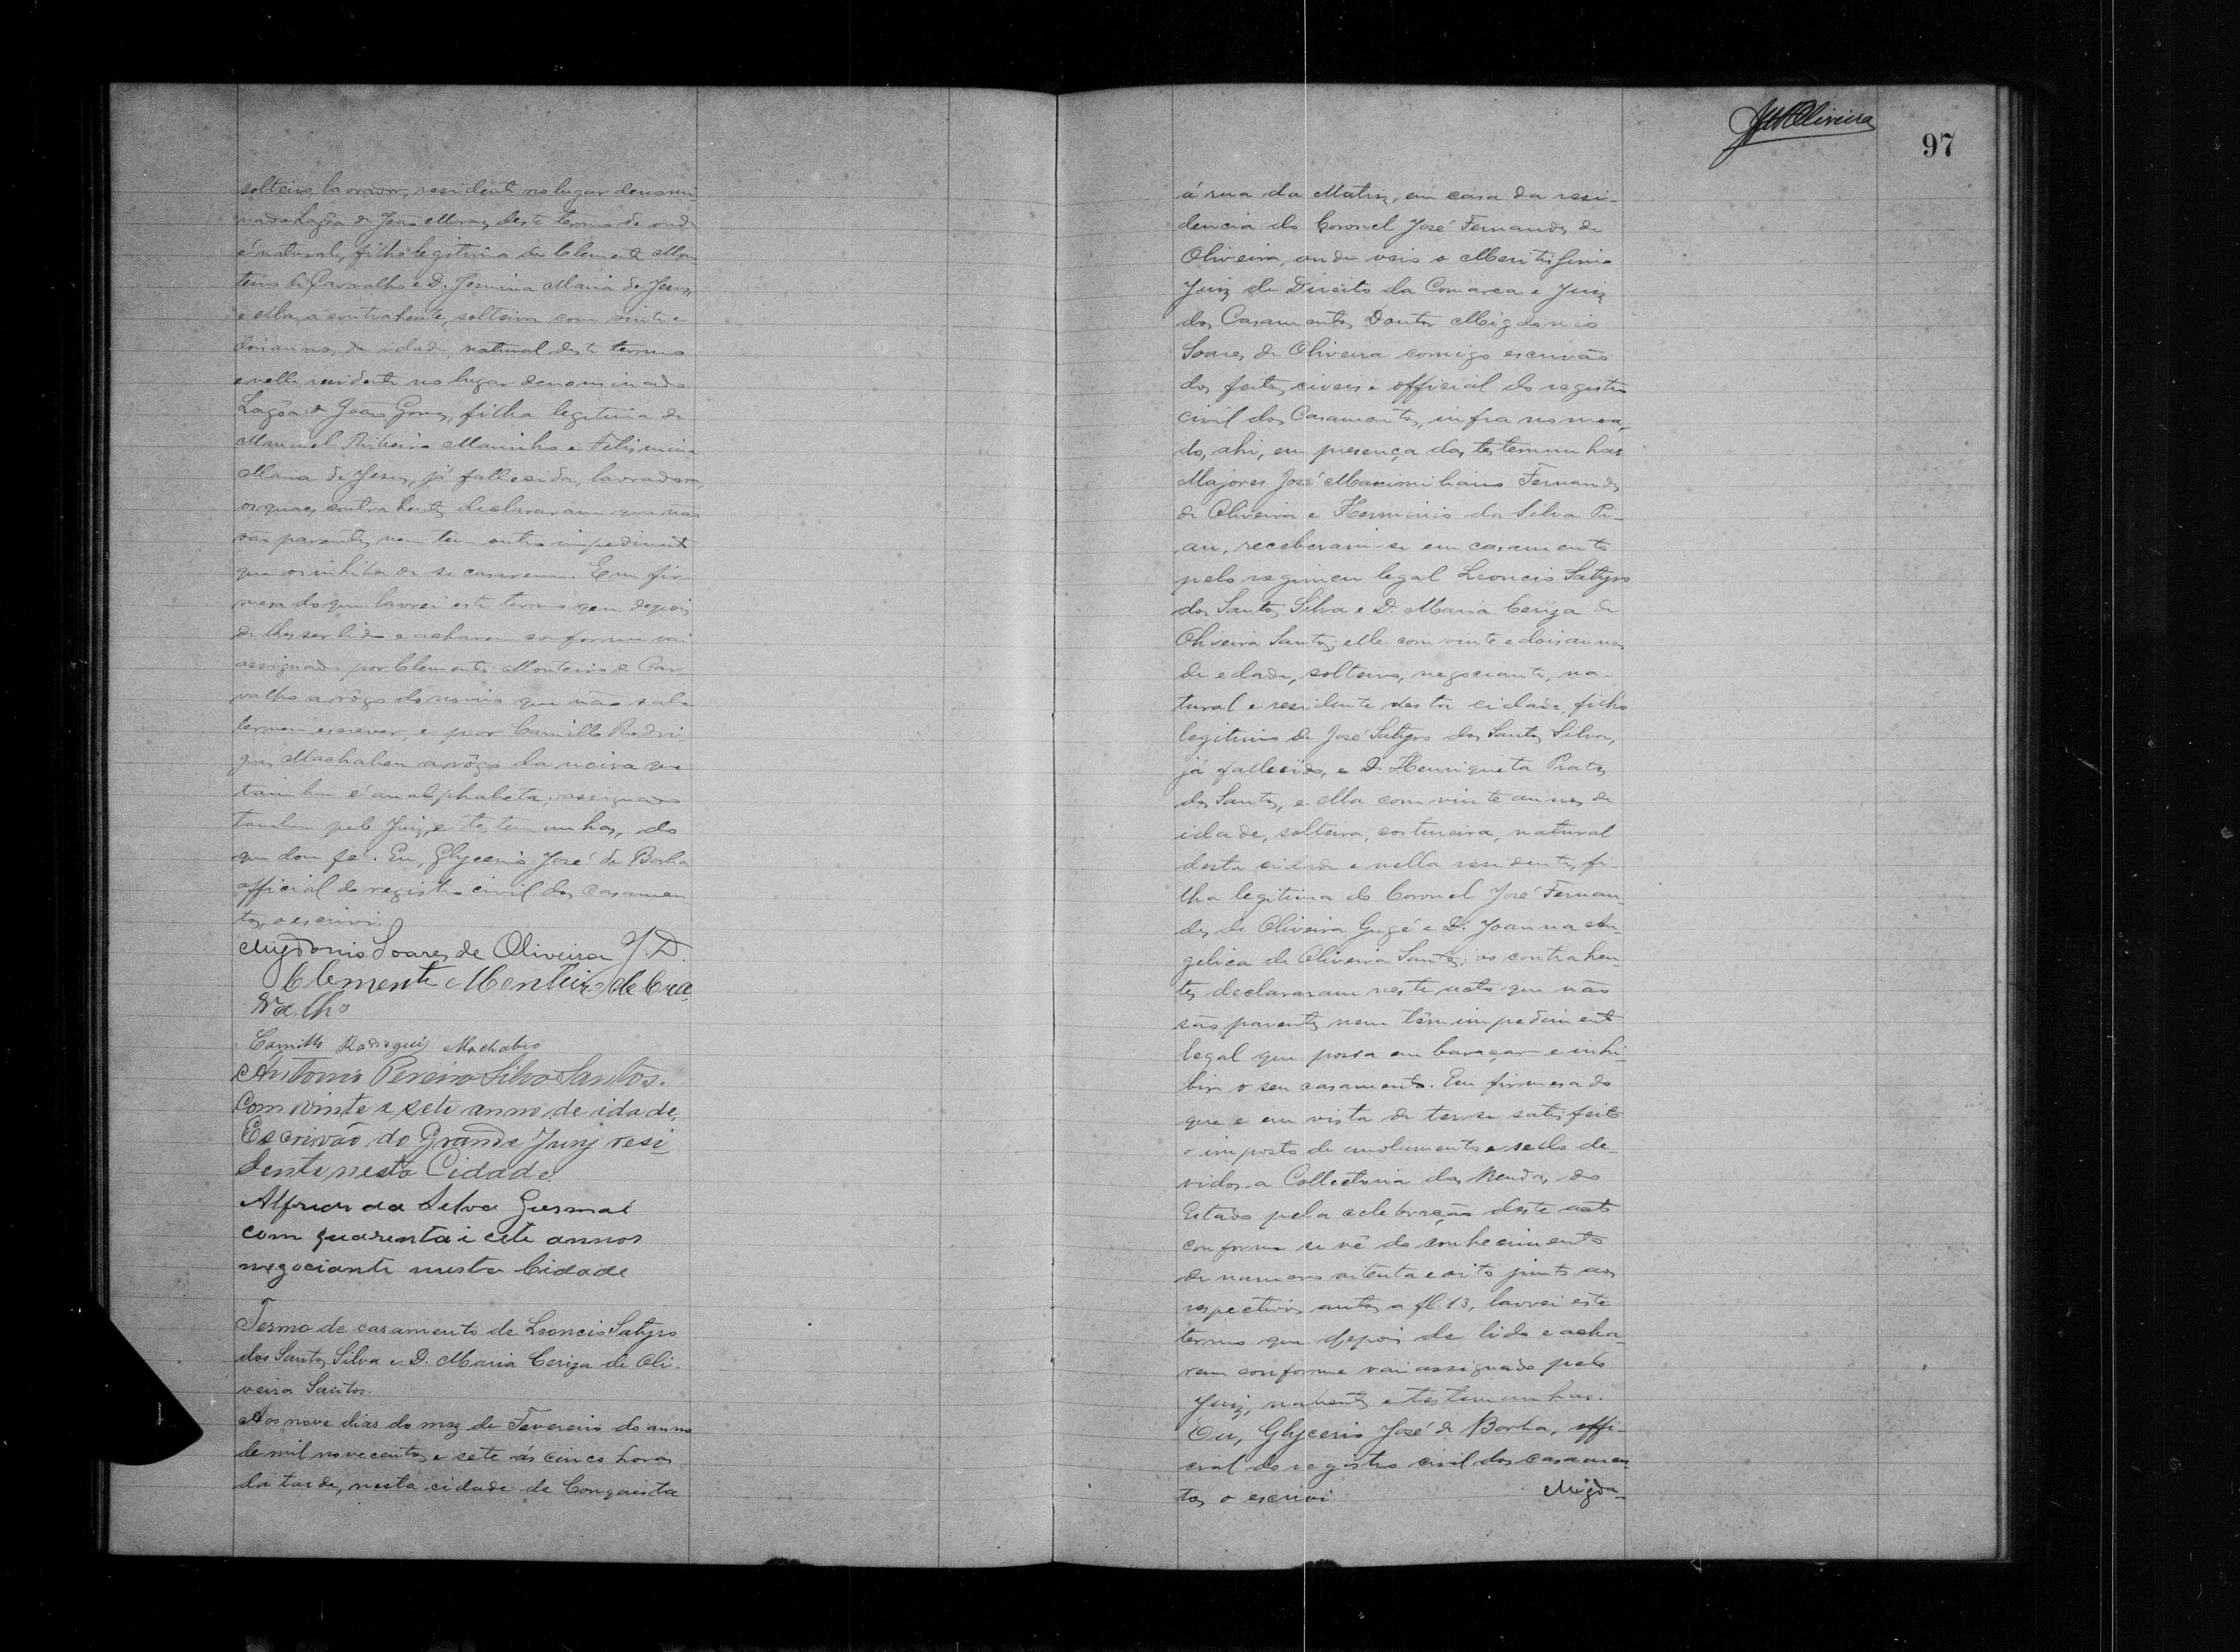 solteiro, lavrador, residente no lugar denomi
nado Lagôa de João Moraes deste termo de onde
é natural, filho legitimo de Clemente Mon
teiro de Carvalho e D. Jesuina Maria de Jesus,
e ella, a contrahente, solteira com vinte e
dois annos de idade, natural deste termo
e nelle residente no lugar denominado
Lagôa de João Gomes, filha legitima de
Manoel Ribeiro Marinho e Felismina
Maria de Jesus, já fallecida, lavradora,
os quaes contrahentes declararam que nao
são parentes nem tem outro impedimento
que os inhiba de se casarem. Em fir
mesa do que lavrei este termo que depois
de lhes ser lido e acharem conforme vai
assignado por Clemente Monteiro de Car
valho a rôgo do noivo que não sabe
ler nem escrever, e por Camillo Rodri
gues Machabeu a rôgo da noiva que
tambem é analphabeta; assignado
tambem pelo Juiz, e testemunhas, do
que dou fé. Eu, Glycerio José de Borba
official do registro civil dos casamen
tos, o escrivi.
Migdonio Soares de Oliveira J. D.
Clemente Monteiro de Cra
valho
Camillo Rodrigues Machabeo
Antonio Pereira Silva Santos.
Com vinte e sete anno de idade,
Escrivão do Grande Jury resi
dente nesta Cidade.
Alfredo da Silva Gusmaõ
com quarenta i cete annos
negociante nesta Cidade
Termo de casamento de Leoncio Satyro
dos Santos Silva e D. Maria Ceriza de Oli-
veira Santos.
Aos nove dias do mez de Fevereiro do anno
de mil novecentos e sete ás cinco horas
da tarde, nesta cidade de Conquista
JMFOliveira
97
á rua da Matriz, em casa da resi-
dencia do Coronel José Fernandes de
Oliveira, onde veio o Meritissimo
Juiz de Direito da Comarca e Juiz
dos Casamentos Doutor Migdonio
Soares de Oliveira comigo escrivão
dos feitos civeis e official do registro
civil dos Casamentos, infra nomea-
do, ahi, em presença das testemunhas
Majores José Maximiliano Fernandes
de Oliveira e Herminio da Silva Pi-
au, receberam-se em casamento
pelo regimen legal Leoncio Satyro
dos Santos Silva e D. Maria Ceriza de
Oliveira Santos; elle com vinte e dois annos
de edade, solteiro, negociante, na-
tural e residente desta cidade, filho
legitimo de José Satyro dos Santos Silva,
já fallecido, e D. Henriqueta Prates
dos Santos, e ella com vinte annos de
idade, solteira, costureira, natural
desta cidade e nella residente, fi-
lha legitima do Coronel José Fernan-
des de Oliveira Gugé e D. Joanna An-
gelica de Oliveira Santos; os contrahen-
tes declararam neste acto que não
são parentes nem têm impedimento
legal que possa embaraçar e inhi-
bir o seu casamento. Em firmesa do
que e em vista de ter-se satisfeito
o imposto de emolumentos e sello de-
vidos a Collectoria das Rendas do
Estado pela celebração deste acto
conforme se vê do conhecimento
de numero oitenta e oito junto aos
respectivos autos a fl. 13, lavrei este
termo que depois de lido e acha-
rem conforme vai assignado pelo
Juiz, nubentes e testemunhas.
Eu, Glycerio José de Borba, offi-
cial do registro civil dos casamen
tos o escrivi. Migdo-